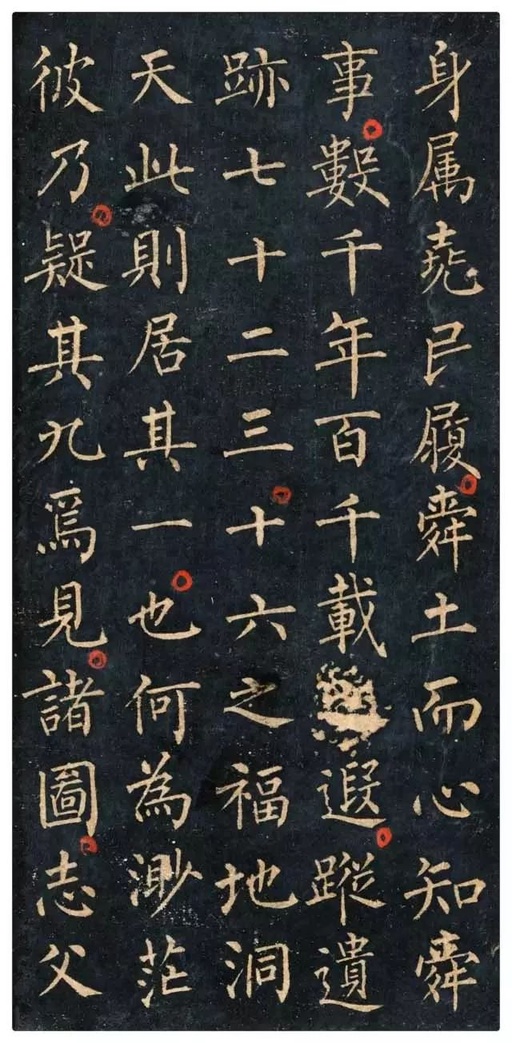 身属堯已履舜土而心知舜
事數千年百千載遐蹤遺
跡七十二三十六之福地洞
天此則居其一也何為渺茫
彼乃疑其九焉見諸圖志父